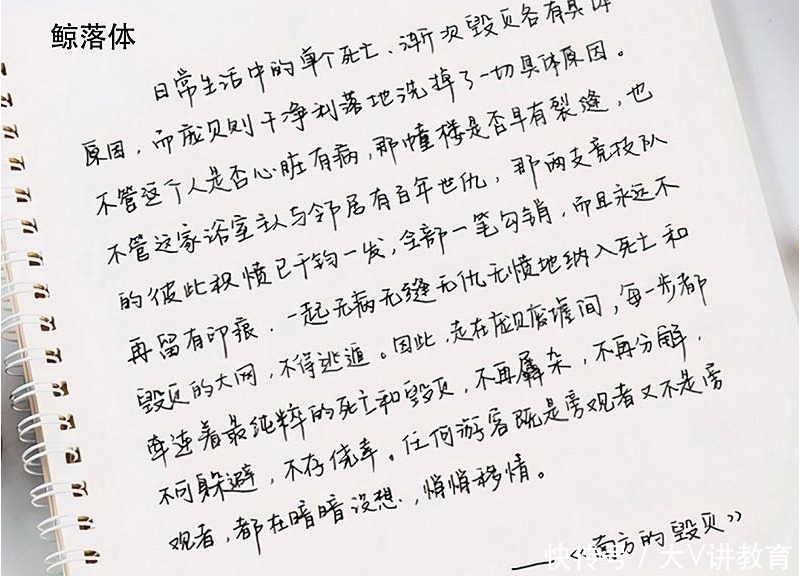 鲸落体
日常生活中的单个死亡、渐次毁灭各有具体
原因，而庞贝则干净利落地洗掉了一切具体原因。
不管这个人是否心脏有病，那幢楼是否早有裂缝，也
不管这家浴室主人与邻居有百年世仇，那两支竞技队
的彼此积愤已千钧一发，全部一笔勾销，而且永远不
再留有印痕．一起无病无缝无仇无愤地纳入死亡和
毁灭的大网，不得逃遁。因此，走在庞贝废墟间，每一步都
牵连着最纯粹的死亡和毁灭，不再羼杂，不再分解，
不可躲避，不存侥幸。任何游客既是旁观者又不是旁
观者，都在暗暗设想，悄悄移情。
——《南方的毁灭》
快传号 / 大V讲教育